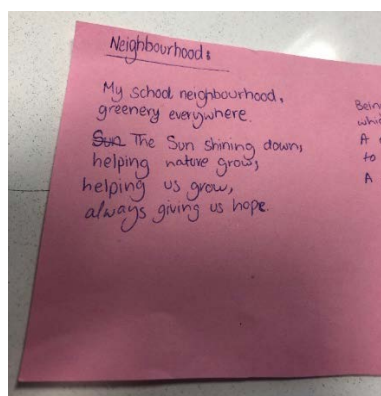 Neighbourhood:
My school neighbourhood,
greenery everywhere.
Sun The Sun shining down,
helping nature grow,
helping us grow,
always giving us hope.
A
to
A